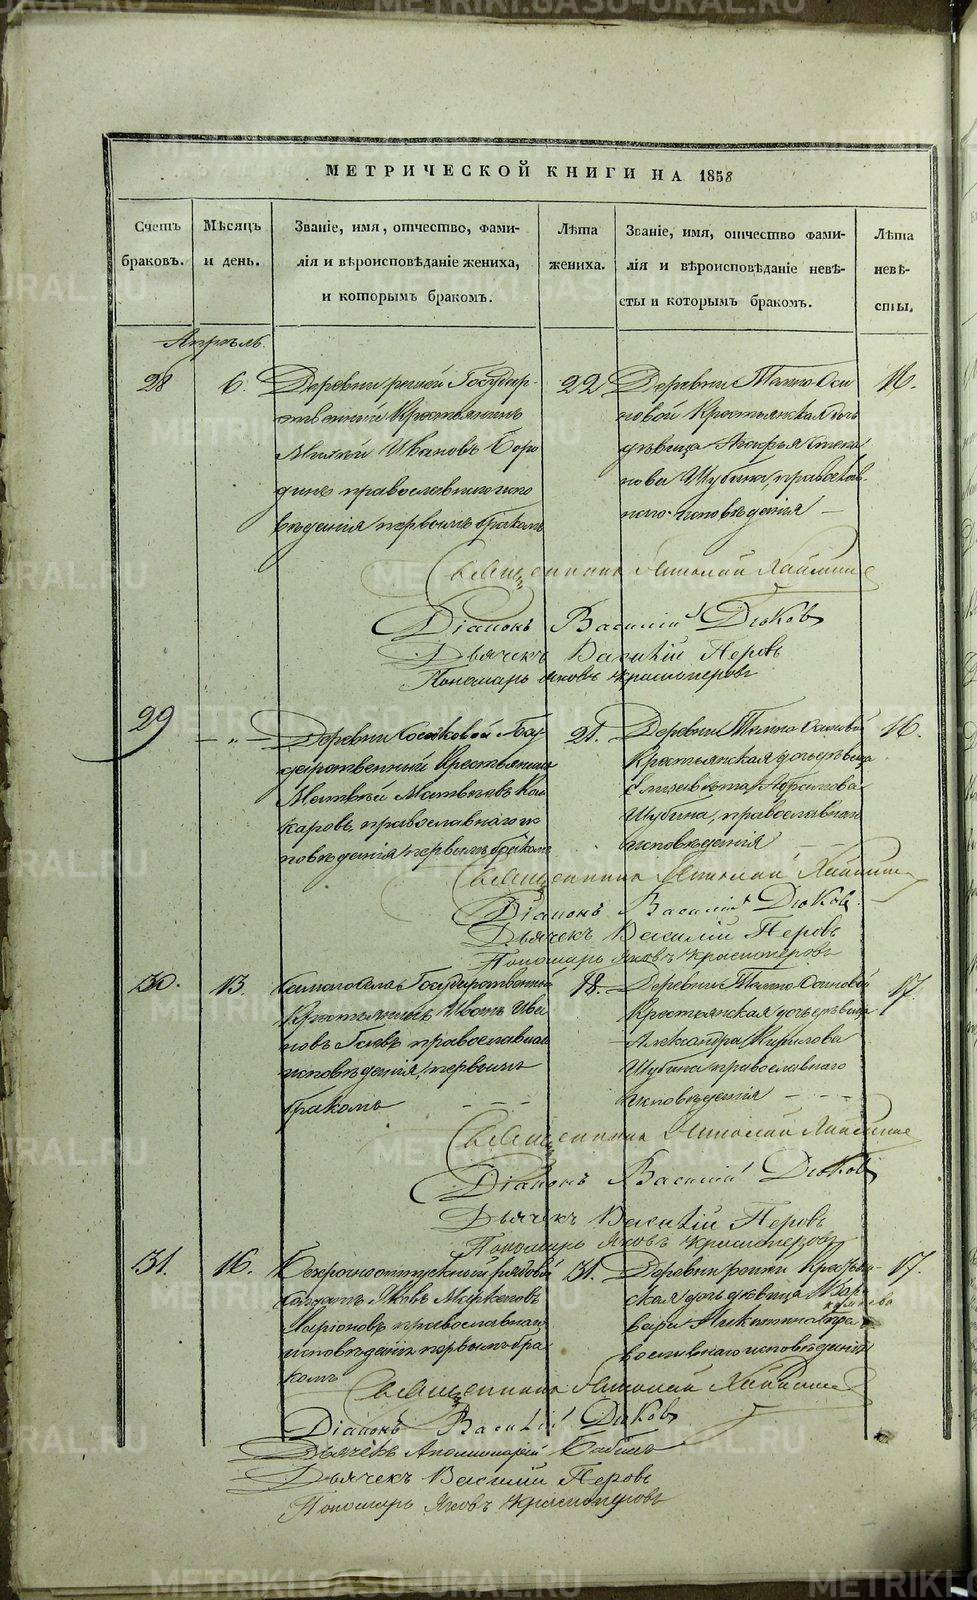 МЕТРИЧЕСКОЙ КНИГИ НА 1858
Счетъ браковъ.
Мѣсяцъ и день.
Званіе, имя, отчество, фами-
лія и вѣроисповѣданіе жениха,
и которымъ бракомъ.
Лѣта жениха.
Званіе, имя, отчество фами-
лія и вѣроисповѣданіе невѣ-
сты и которымъ бракомъ.
Лѣта невѣ-
сты.
Апрѣль.
28
6.
Деревни Государ-
ственный Крестьянинъ
Ивановъ Боро
динъ православнаго испо
вѣданія первымъ бракомъ
22
Деревни Оси
новой Крестьянская дочь
дѣвица Агафья Степа
нова Шубина, православ-
наго исповѣданія —
16.
Священникъ
Діаконъ Василій Дюковъ
Дьячекъ Василій Перовъ
Пономарь Яковъ Красноперовъ
29
— „ —
Деревни Госу
дарственный Крестьянинъ
Матвѣй Матвѣевъ Ко
каровъ, православнаго ис
повѣданія первымъ бракомъ
21.
Деревни Осиновой
Крестьянская дочь дѣвица
Елизавета
Шубина, православнаго
исповѣданія
16.
Священникъ
Діаконъ Василій Дюковъ
Дьячекъ Василій Перовъ
Пономарь Яковъ Красноперовъ
30.
13.
Самаго села Государственный
Крестьянинъ Иванъ Ива
новъ православнаго
исповѣданія, первымъ
бракомъ - - -
18.
Деревни Осиновой
Крестьянская дочь дѣвица
Александра Кирилова
Шубина православнаго
исповѣданія - - -
17.
Священникъ
Діаконъ Василій Дюковъ
Дьячекъ Василій Перовъ
Пономарь Яковъ Красноперовъ
31.
16.
Безсрочноотпускный рядовой
солдатъ Яковъ
Ларіоновъ православнаго
исповѣданія первымъ бра
комъ
31.
Деревни Крестьян-
ская дочь дѣвица Вар
вара Никитина пра
вославнаго исповѣданія
17.
Священникъ
Діаконъ Василій Дюковъ
Дьячекъ Аполлинарій
Дьячекъ Василій Перовъ
Пономарь Яковъ Красноперовъ
METRIKI.GASO-URAL.RU